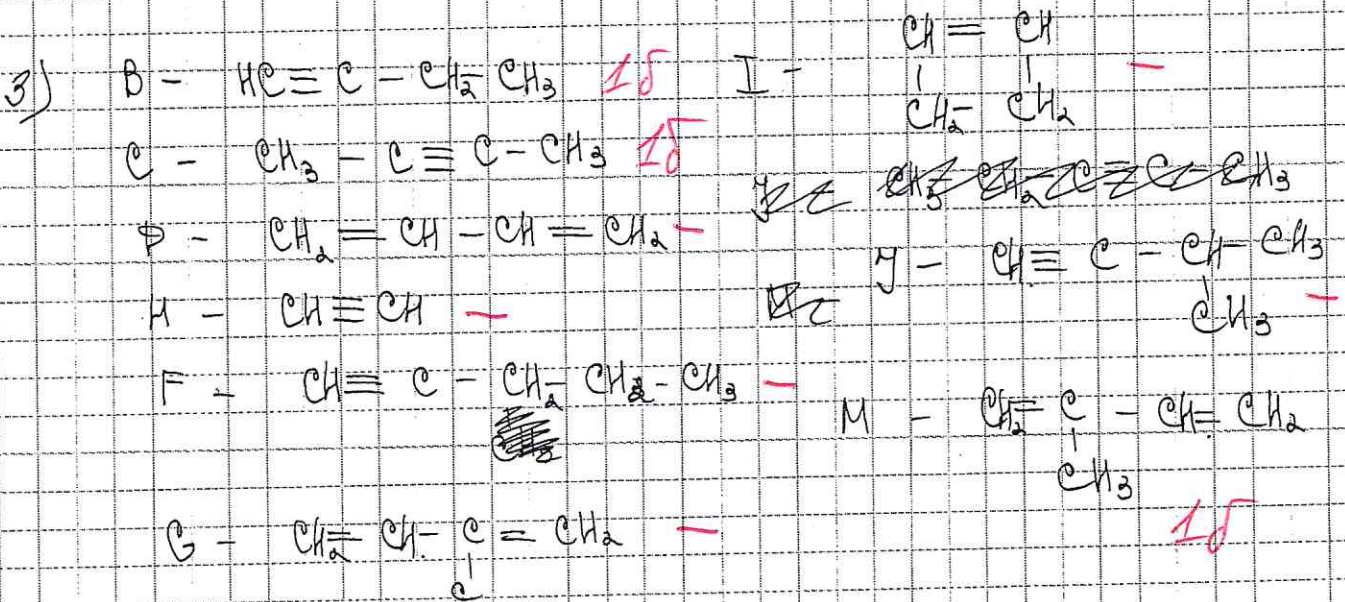 3) B - HC≡C-CH2-CH3 1б
C - CH3-C≡C-CH3 1б
D - CH2=CH-CH=CH2 -
H - CH≡CH -
F - CH≡C-CH2-CH2-CH3 -
G - CH2=CH-C=CH2 -
C
I - CH=CH -
CH2-CH2
CH3-CH2-C≡C-CH3
J - CH≡C-CH-CH3
CH3 -
M - CH2=C-CH=CH2
CH3
1б